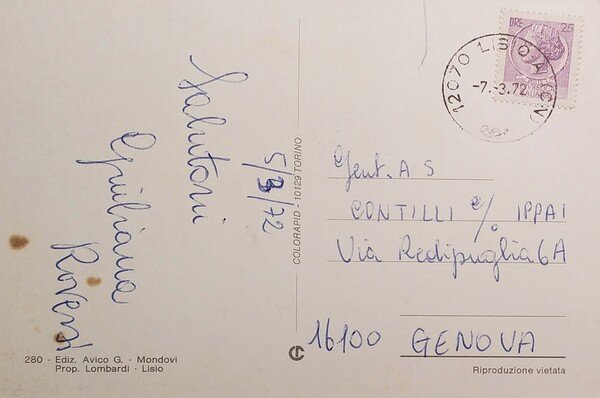 LIRE 25
12070 LISIO (CN)
-7.-3.72
Salutoni
5/3/72
Giuliana
Roversi
Gent. A S
CONTILLI c/o IPPAI
Via Redipuglia 6A
16100 GENOVA
COLORAPID - 10129 TORINO
280 - Ediz. Avico G. - Mondovì
Prop. Lombardi - Lisio
Riproduzione vietata